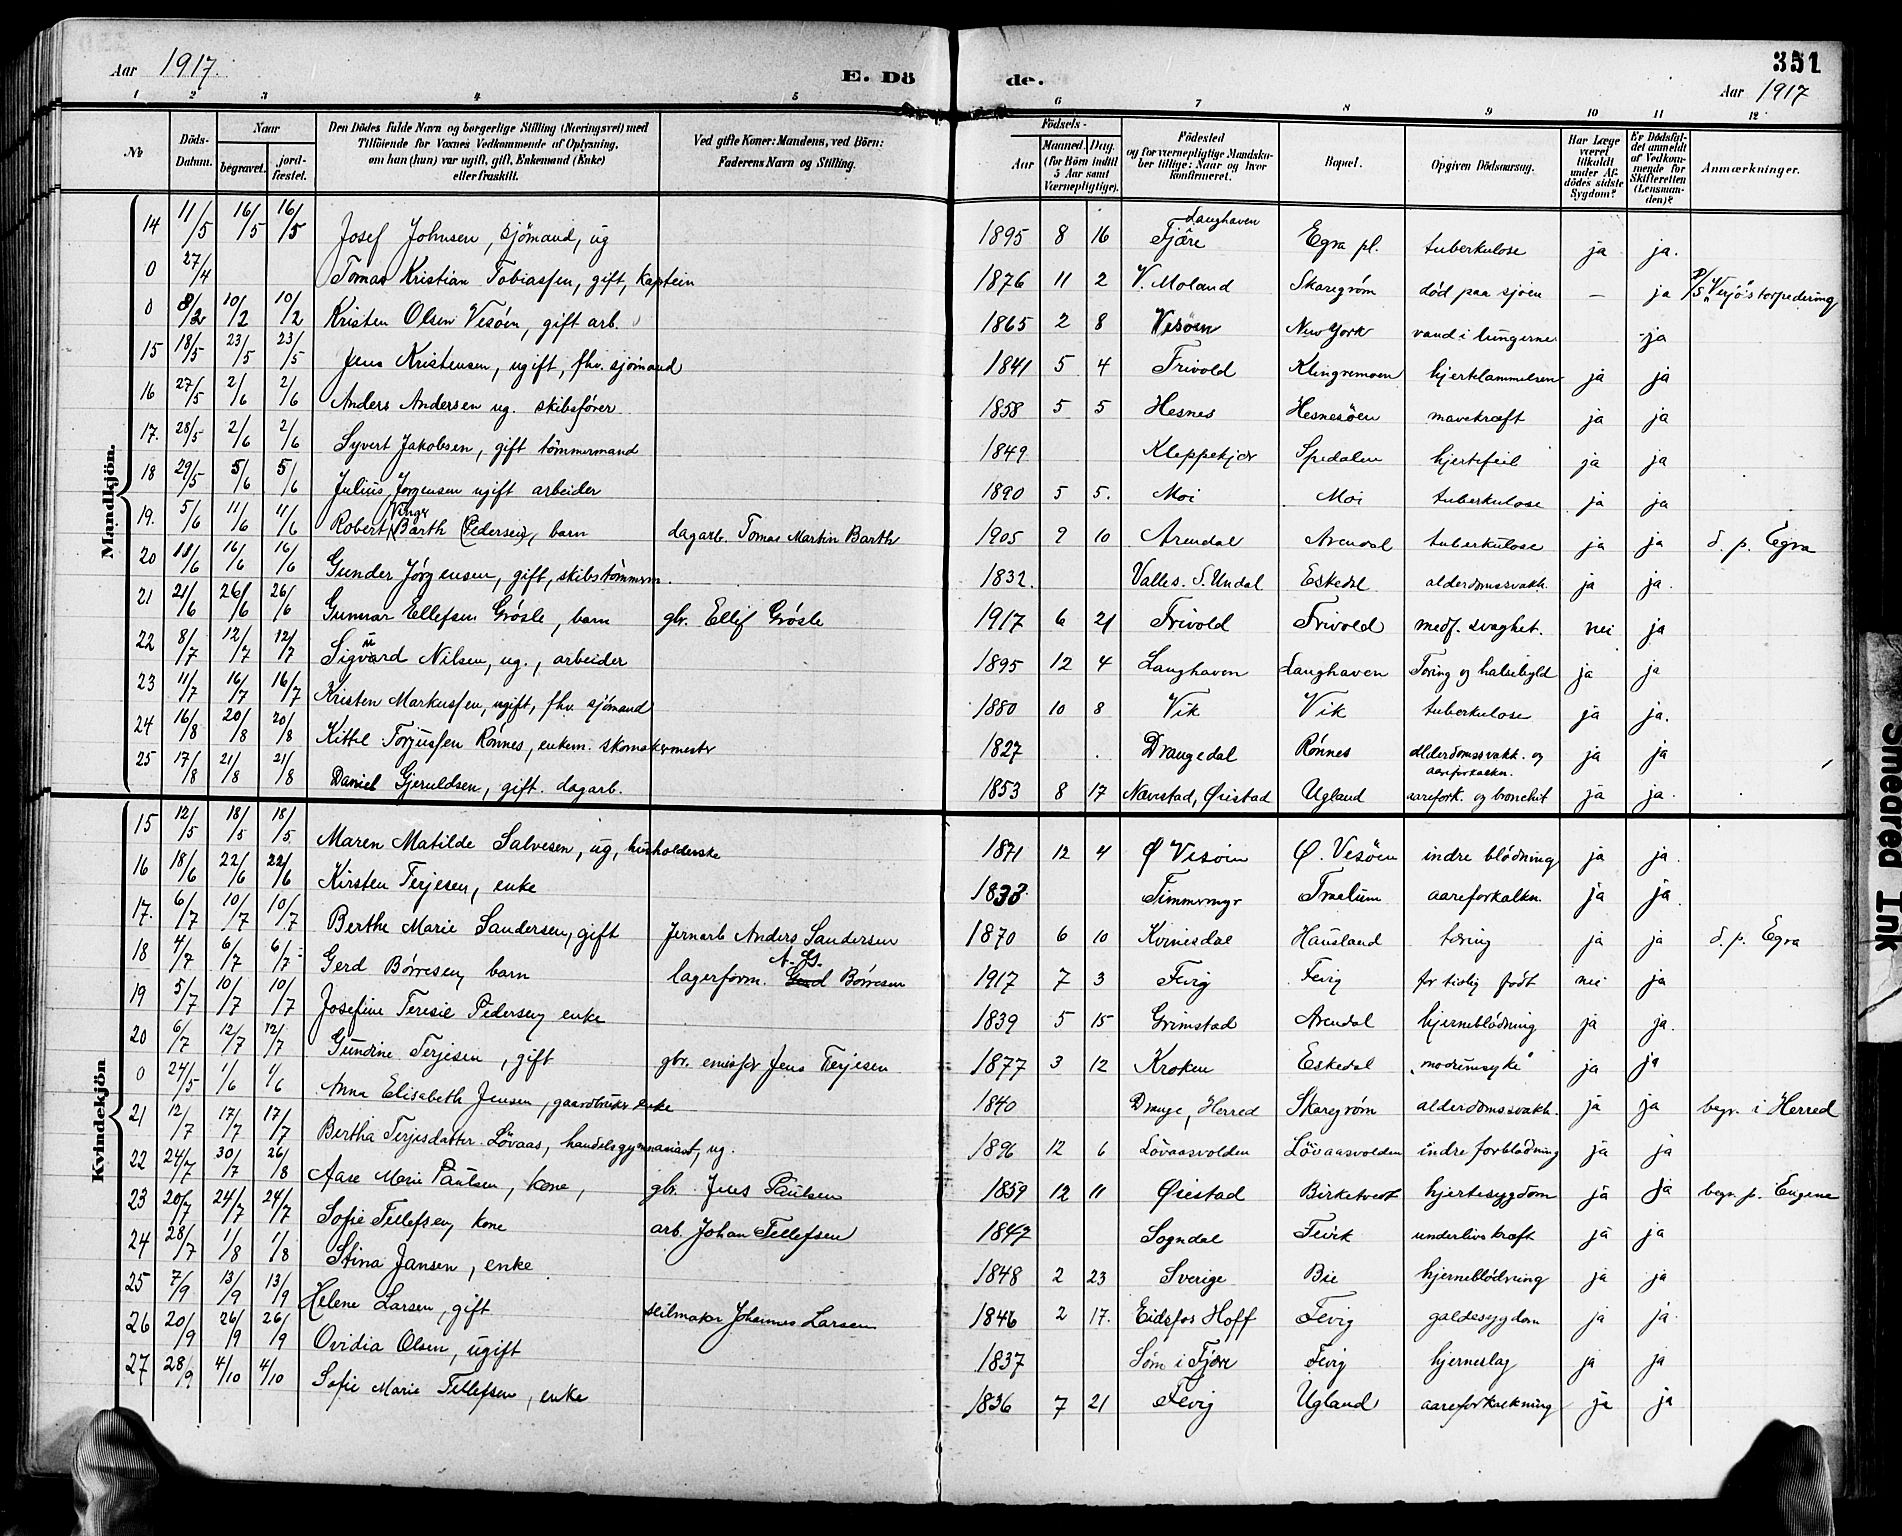 Aar 1917.
E. Dö
de.
351
Aar 1917
1 2 3 4 5 6 7 8 9 10 11 12
No
Döds-Datum.
Naar
begravet.
jordfæstet.
Den Dödes fulde Navn og borgerlige Stilling (Næringsvei) med Tilföiende for Voxnes Vedkommende af Oplysning, om han (hun) var ugift, gift, Enkemand (Enke) eller fraskilt.
Ved gifte Koner: Mandens, ved Börn: Faderens Navn og Stilling.
Födsels-
Aar
Maaned. Dag. (for Börn indtil 5 Aar samt Værnepligtige).
Födested og for værnepligtige Mandskaber tillige: Naar og hvor konfirmeret.
Bopæl.
Opgiven Dödsaarsag.
Har Læge været tilkaldt under Afdödes sidste Sygdom?
Er Dödsfaldet anmeldt af Vedkommende for Skifteretten (Lensmanden)?
Anmærkninger.
Mandkjön.
14 11/5 16/5 16/5 Josef Johnsen, sjömand, ug 1895 8 16 Langhaven Fjære Egra pl. tuberkulose ja ja.
0 27/4 Tomas Kristian Tobiassen, gift, kaptein 1876 11 2 V. Moland Skaregrøm död paa sjöen — ja P/S "Versjö's torpedering
0 8/2 10/2 10/2 Kristen Olsen Vesöen, gift arb. 1865 2 8 Vesöen New York vand i lungerne ja
15 18/5 23/5 23/5 Jens Kristensen, ugift, fhv. sjömand 1841 5 4 Frivold Klingremoen hjertelammelsen ja ja
16 27/5 2/6 2/6 Anders Andersen ug. skibsförer 1858 5 5 Hesnes Hesnesöen mavekræft ja ja
17. 28/5 2/6 2/6 Syvert Jakobsen, gift tömmermand 1849 Kleppekjær Spedalen hjertefeil ja ja
18 29/5 5/6 5/6 Julius Jörgensen ugift arbeider 1890 5 5. Moi Moi tuberkulose ja ja
19. 5/6 11/6 11/6 Robert Barth (Pedersen), barn dagarb. Tomas Martin Barth 1905 9 10 Arendal Arendal tuberkulose ja ja d. p. Egra
20 11/6 16/6 16/6 Gunder Jörgensen, gift, skibstömmerm. 1832. Valle s. S. Undal Eskedal alderdomssvakh. ja ja.
21 21/6 26/6 26/6 Gunnar Ellefsen Grösle, barn gbr. Ellef Grösle 1917 6 21 Frivold Frivold medf. svaghet. nei ja
22 8/7 12/7 12/7 Sigvard Nilsen, ug., arbeider 1895 12 4 Langhaven Langhaven Tæring og halsebyld ja ja
23 11/7 16/7 16/7 Kristen Markussen, ugift, fhv. sjömand 1880 10 8 Vik Vik tuberkulose ja ja.
24 16/8 20/8 20/8 Kittel Torjussen Rönnes, enkem. skomakermester 1827 Drangedal Rönnes alderdomssvakh. og aareforkalkn. ja ja
25 17/8 21/8 21/8 Daniel Gjeruldsen, gift. dagarb. 1853 8 17 Nævestad, Øiestad Ugland aarefork. og bronchit ja ja.
Kvindekjön
15 12/5 18/5 18/5 Maren Matilde Salvesen, ug, husholderske 1871 12 4 Ø Vesöen Ø. Vesöen indre blödning ja ja.
16 18/6 22/6 22/6 Kirsten Terjesen, enke 1833 Timmermyr Trælum aareforkalkn. ja ja.
17. 6/7 10/7 10/7 Berthe Marie Sandersen, gift Jernarb Anders Sandersen 1870 6 10 Kvinesdal Hausland tæring ja ja d. p. Egra
18 4/7 6/7 6/7 Gerd Börresen, barn lagerform. A. G. Börresen 1917 7 3 Fevig Fevig for tidlig födt nei ja
19 5/7 10/7 10/7 Josefine Teresie Pedersen, enke 1839 5 15 Grimstad Arendal hjerneblödning ja ja.
20 6/7 12/7 12/7 Gundine Terjesen, gift gbr. Jens Terjesen 1877 3 12 Kroken Eskedal "modersyke" ja ja
0 24/5 1/6 1/6 Anna Elisabeth Jensen, gaardbruker enke 1840 Drange, Herred Skaregrøm alderdomssvakh. ja ja begr. i Herred
21 12/7 17/7 17/7 Bertha Terjesdatter Lövaas, handelsgymnasiast, ug. 1896 12 6 Lövaasvolden Lövaasvolden indre forblödning ja ja
22 24/7 30/7 26/8 Aase Marie Paulsen, kone, gbr. Jens Paulsen 1859 12 11 Øiestad Birketvedt hjertesygdom ja ja begr. p. Eugene
23 20/7 24/7 24/7 Sofie Tellefsen, kone arb. Johan Tellefsen 1847 Sogndal Fevik underlivskræft ja ja
24 28/7 1/8 1/8 Stina Jansen, enke 1848 2 23 Sverige Bie hjerneblödning ja ja
25 7/9 13/9 13/9 Helene Larsen, gift seilmaker Johannes Larsen 1846 2 17. Eidsfos Hoff Fevig galdesygdom ja ja
26 20/9 26/9 26/9 Ovidia Olsen, ugift 1837 Söm i Fjære Fevig hjerneslag ja ja
27 28/9 4/10 4/10 Sofie Marie Tellefsen, enke 1836 7 21 Fevig Ugland aareforkalkning ja ja
Smeared Ink